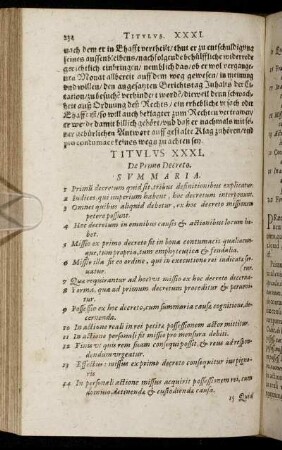 234 TITVLVS XXXI.
nach dem er in Ehafft vertheilt / thut er zu entschuldigung
seines aussenbleibens / nachfolgende behülffliche widerrede
gerichtlich einbringen / nemblich das / ob er wol vergangens
Monat allbereit auff dem weg gewesen / in meinung
vnd willen / den angesatzten Gerichtstag Inhalts der Ci-
tation / zu besuchẽ verhindert werd /
ten auß Ordnung deß Rechts / ein erhebliche vrsach oder
Ehafft ist / so will auch beklagter zum Rechten
er werde damit billich gehört / vnd daß er nachmals mit sei-
ner gebürlichen Antwort auff gestalte Klag zuhören / vnd
pro contumace keines wegs zu achten sey.
TITVLVS XXXI.
De Primo Decreto.
SVMMARIA.
1 Primũ decretum quid sit, tribus definitionibus explicatur.
2 Iudices, qui imperium habent, hoc decretum interponunt.
3 Omnes quibus aliquid debetur, ex hoc decreto missionem
petere possunt.
4 Hoc decretum in omnibus causis & actionibus locum ha-
bet.
5 Missio ex primo decreto fit in bona contumacis qualiacun-
que, tam propria, tum emphyteutica & feudalia.
6 Missio illa fit eo ordine, qui in executione rei iudicata ser-
uatur.
7 Qua requirantur ad hoc vt missio ex hoc decreto decernatur.
8 Forma, qua ad primum decretum proceditur & peruenitur.
9 Possessio ex hoc decreto, cum summaria causa cognitione, de-
cernenda.
10 In actione reali in rei petita possessionem actor mittitur.
11 In actione personali fit missio pro mensura debiti.
12 Finis vt quis rem suam consequi possit, & reus ad respon-
dendum vrgeatur.
13 Effectus: missus ex primo decreto consequitur ius pigno-
ris.
14 In personali actione missus acquirit possessionem rei, cum
dominio detinenda & custodienda causa.
15 Quid